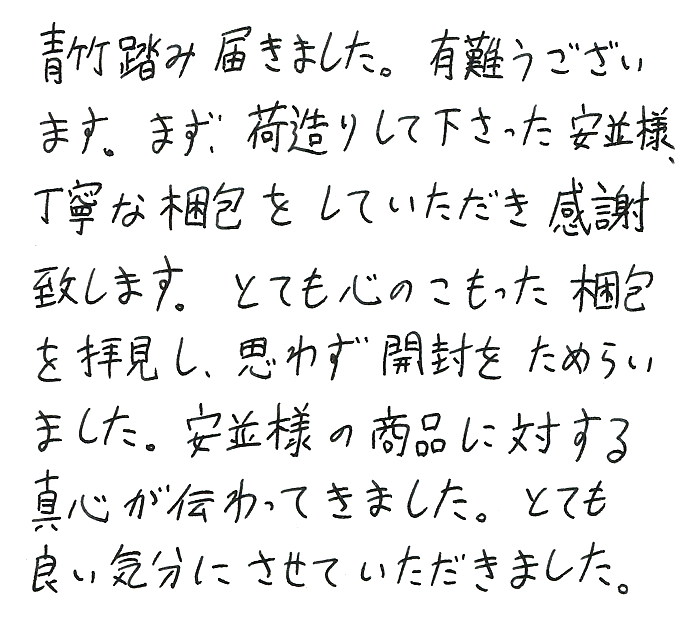 青竹踏み届きました。有難うござい
ます。まず、荷造りして下さった安並様、
丁寧な梱包をしていただき感謝
致します。とても心のこもった梱包
を拝見し、思わず開封をためらい
ました。安並様の商品に対する
真心が伝わってきました。とても
良い気分にさせていただきました。